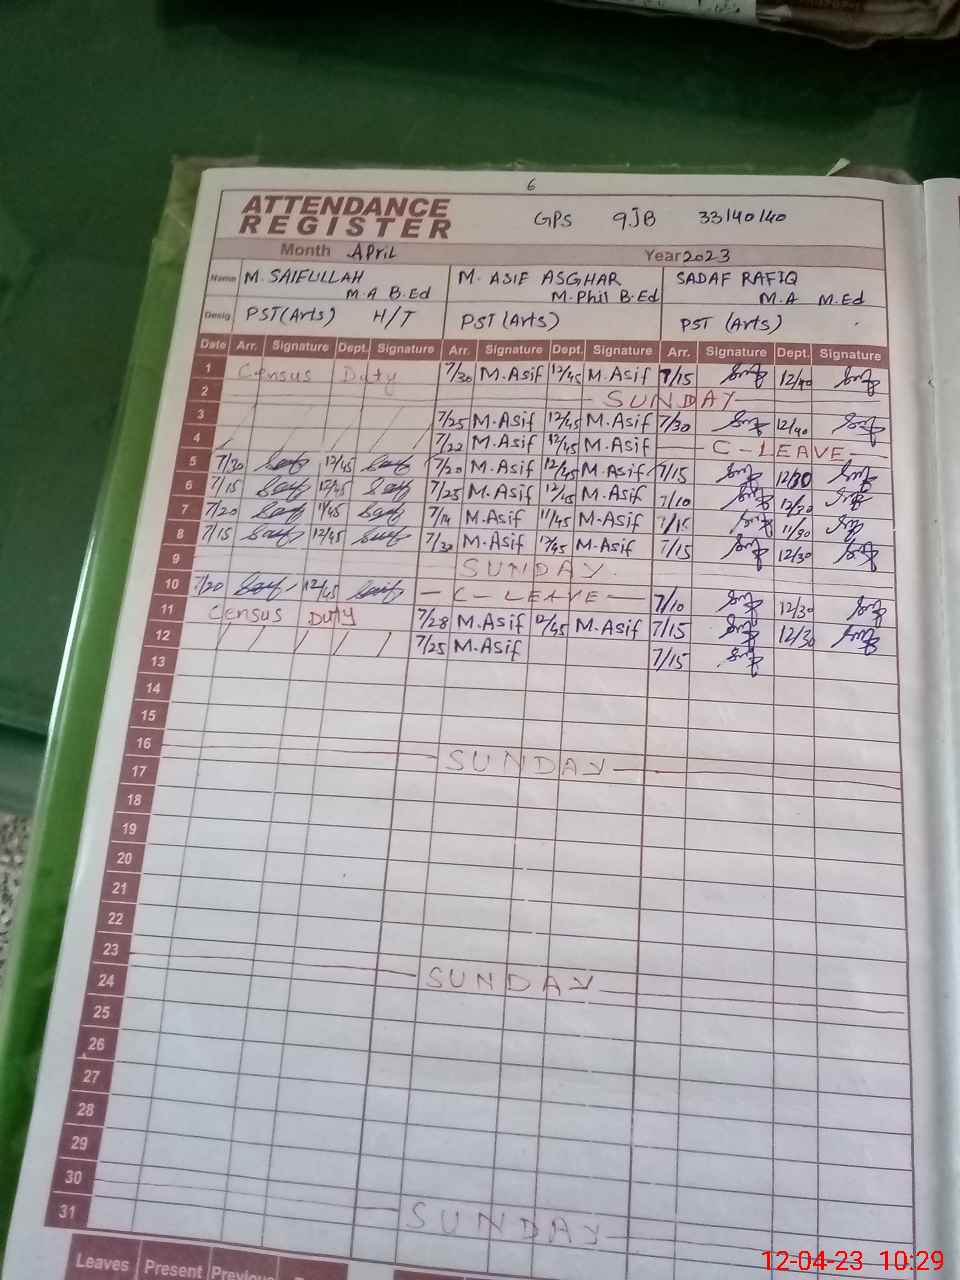 6
ATTENDANCE
REGISTER
GPS 9JB 33140140
Month April Year 2023
Name M. SAIFULLAH M. ASIF ASGHAR SADAF RAFIQ
M.A B.Ed M.Phil B.Ed M.A M.Ed
Desig PST(Arts) H/T PST (Arts) PST (Arts)
Date Arr. Signature Dept. Signature Arr. Signature Dept. Signature Arr. Signature Dept. Signature
1 Census Duty 7/30 M.Asif 12/45 M.Asif 7/15 12/40
2 SUNDAY
3 7/25 M.Asif 12/45 M.Asif 7/30 12/40
4 7/22 M.Asif 12/45 M.Asif C-LEAVE
5 7/30 12/45 7/20 M.Asif 12/45 M.Asif 7/15 12/30
6 7/15 12/45 7/25 M.Asif 12/45 M.Asif 7/10 12/30
7 7/20 11/45 7/14 M.Asif 11/45 M.Asif 7/15 11/30
8 7/15 12/45 7/30 M.Asif 12/45 M.Asif 7/15 12/30
9 SUNDAY
10 7/20 12/45 C-LEAVE 7/10 12/30
11 Census Duty 7/28 M.Asif 12/45 M.Asif 7/15 12/30
12 7/25 M.Asif 7/15
13
14
15
16 SUNDAY
17
18
19
20
21
22
23 SUNDAY
24
25
26
27
28
29
30 SUNDAY
31
Leaves Present Previous
12-04-23 10:29